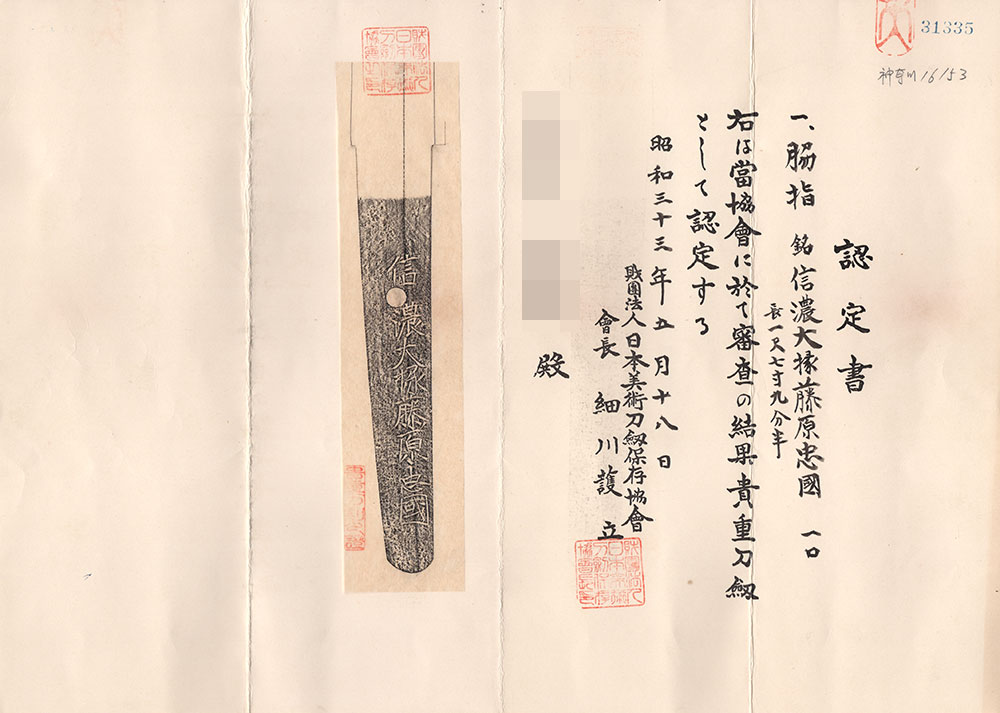 31335
神奈川 16153
認定書
一、脇指 銘 信濃大掾藤原忠國 一口
長一尺七寸九分半
右は當協會に於て審査の結果貴重刀劔
として認定する
昭和三十三年五月十八日
財團法人日本美術刀劔保存協會
會長 細川護立
殿
信濃大掾藤原忠國